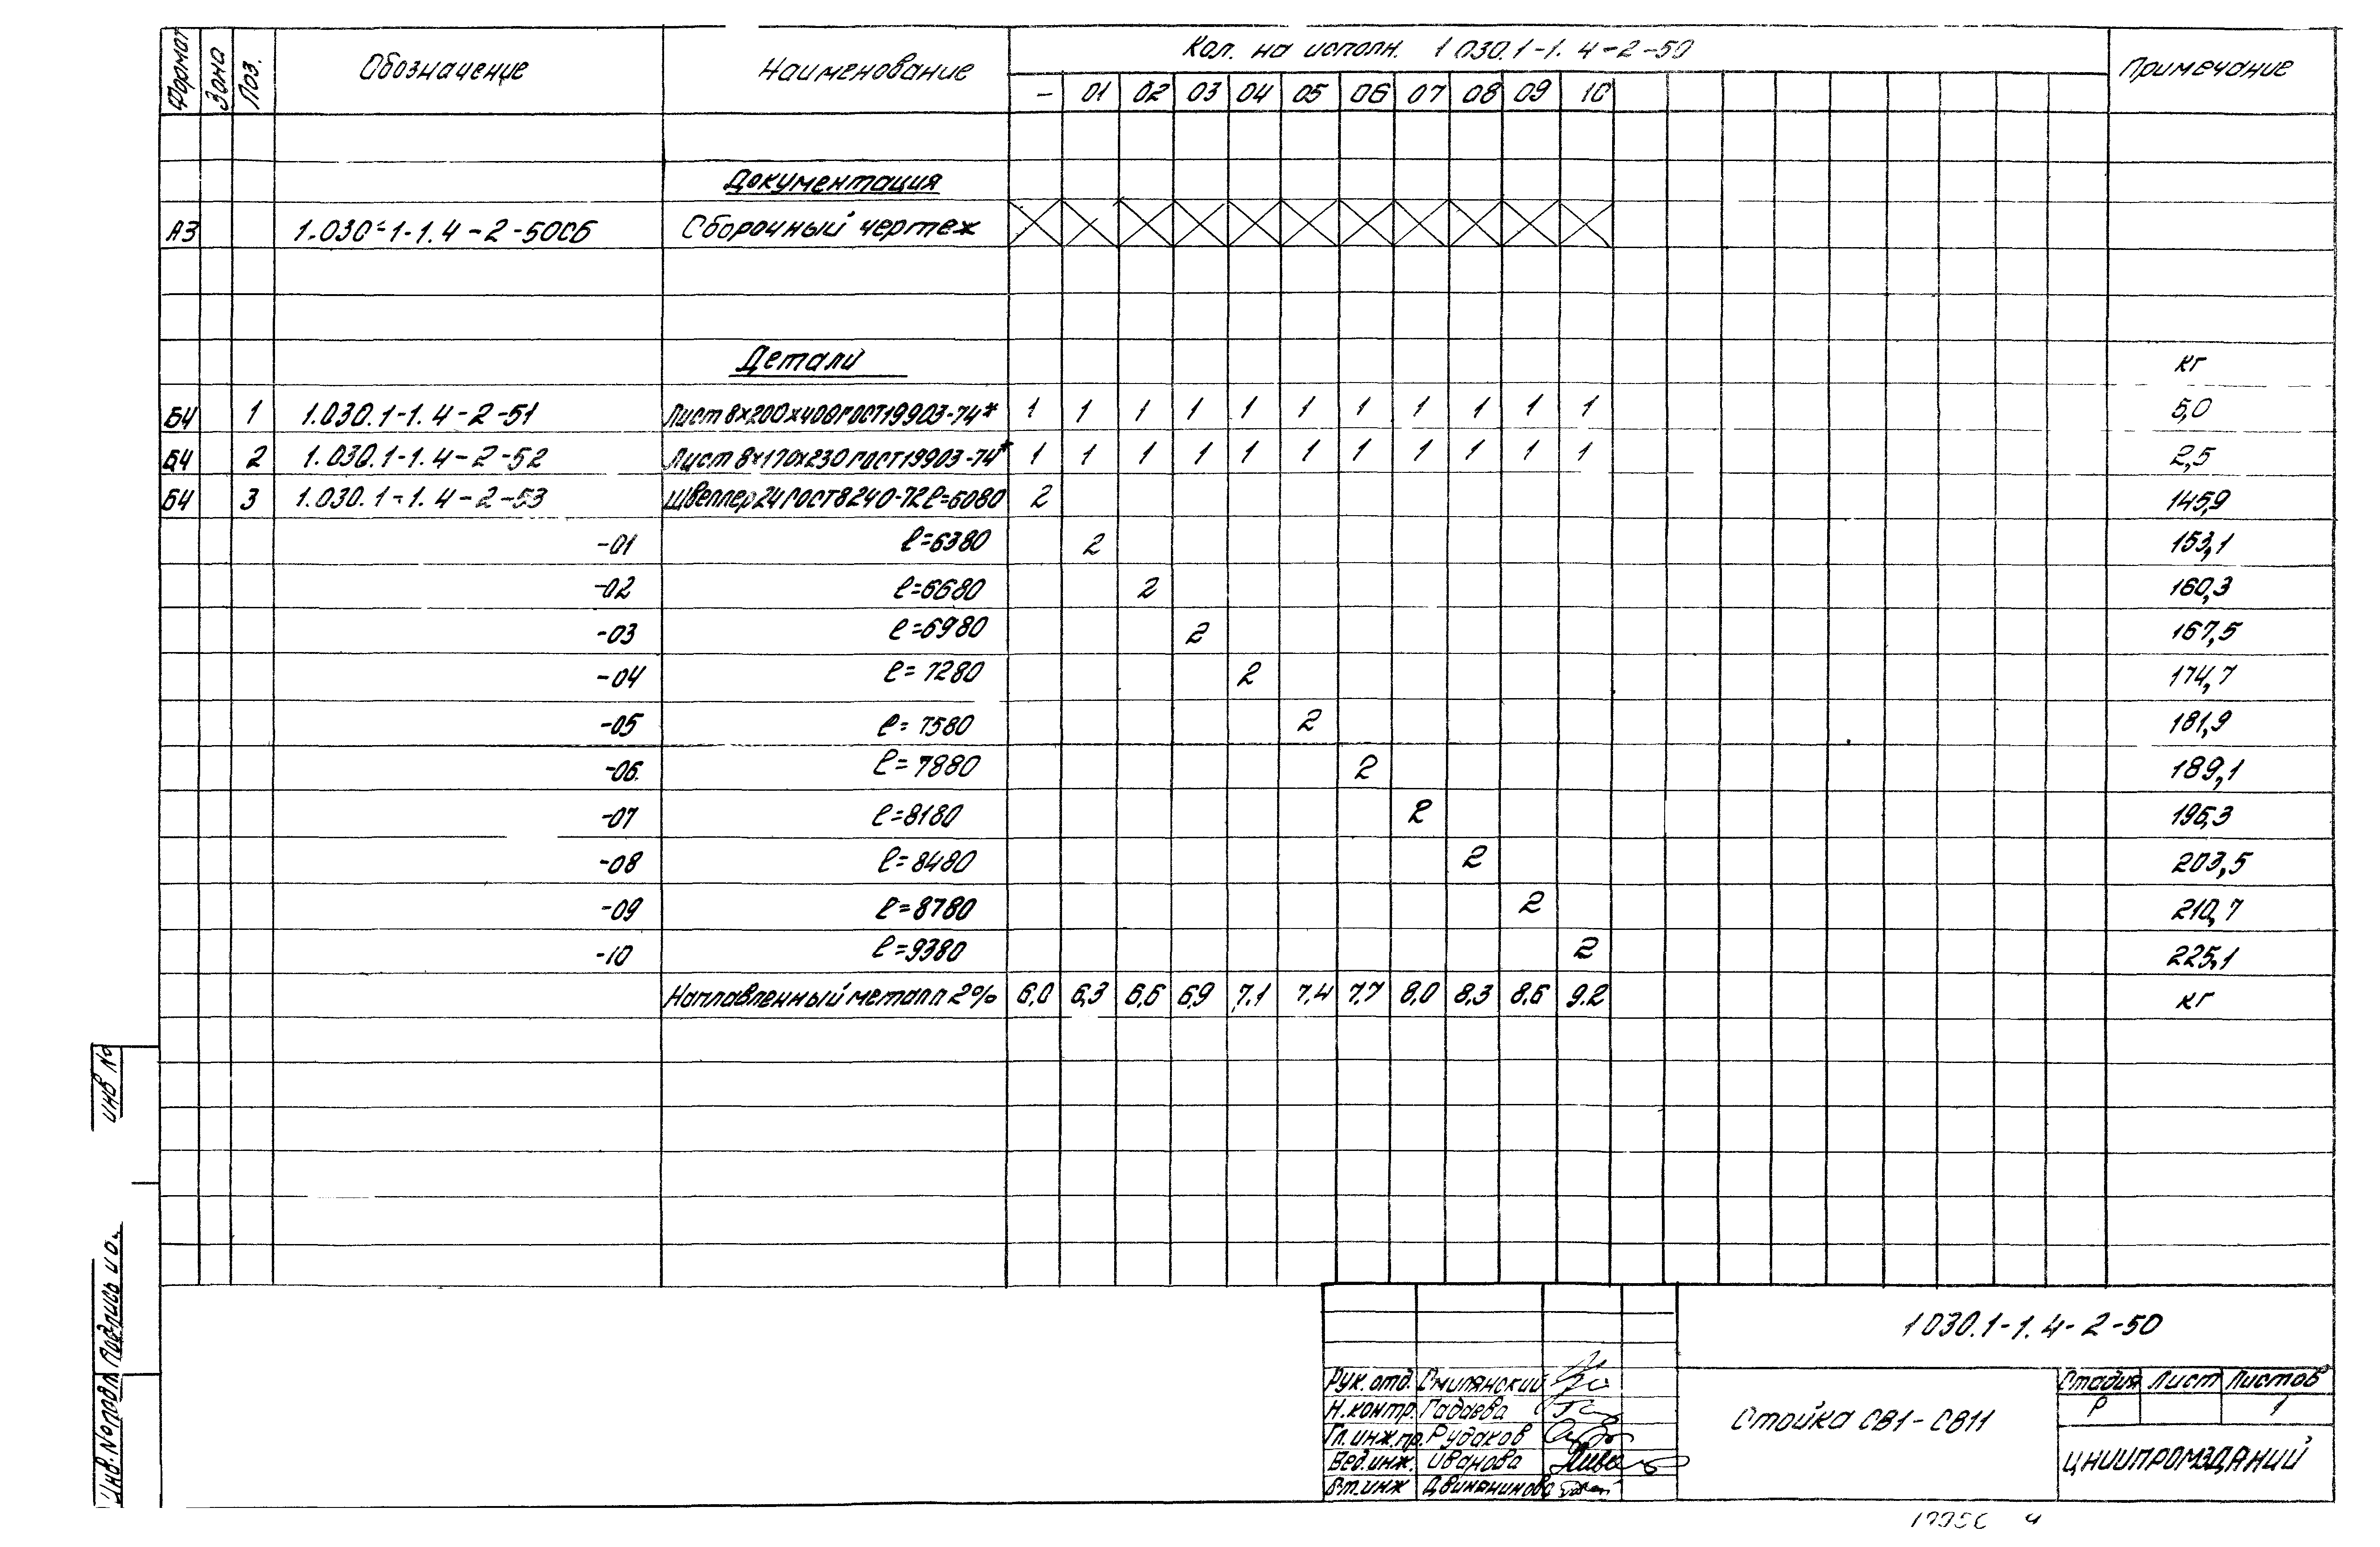 Формат Зона Поз. Обозначение Наименование Кол. на исполн. 1 030.1-1.4-2-50 Примечание
- 01 02 03 04 05 06 07 08 09 10
Документация
А3 1.030-1-1.4-2-50СБ Сборочный чертеж
Детали кг
Б4 1 1.030.1-1.4-2-51 Лист 8×200×400 ГОСТ 19903-74* 1 1 1 1 1 1 1 1 1 1 1 5,0
Б4 2 1.030.1-1.4-2-52 Лист 8×170×230 ГОСТ 19903-74* 1 1 1 1 1 1 1 1 1 1 1 2,5
Б4 3 1.030.1-1.4-2-53 Швеллер 24 ГОСТ 8240-72 ℓ=6080 2 145,9
-01 ℓ=6380 2 153,1
-02 ℓ=6680 2 160,3
-03 ℓ=6980 2 167,5
-04 ℓ=7280 2 174,7
-05 ℓ=7580 2 181,9
-06 ℓ=7880 2 189,1
-07 ℓ=8180 2 196,3
-08 ℓ=8480 2 203,5
-09 ℓ=8780 2 210,7
-10 ℓ=9380 2 225,1
Наплавленный металл 2% 6,0 6,3 6,6 6,9 7,1 7,4 7,7 8,0 8,3 8,6 9.2 кг
инв №
Подпись и
Инв. № подл
1 030.1-1.4-2-50
Рук. отд. Смилянский
Н.контр. Гадаева
Гл.инж.пр. Рудаков
Вед.инж. Иванова
Ст.инж Двинянинова
Стойка СВ1-СВ11
Стадия Лист Листов
Р 1
ЦНИИПРОМЗДАНИЙ